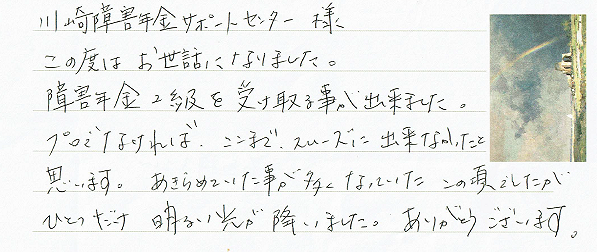 川崎障害年金サポートセンター 様
この度は お世話になりました。
障害年金2級を受け取る事が出来ました。
プロでなければ、ここまで、スムーズに 出来なかったと
思います。 あきらめていた事が多くなっていた この頃でしたが
ひとつだけ 明るい光が 降りました。 ありがとうございます。